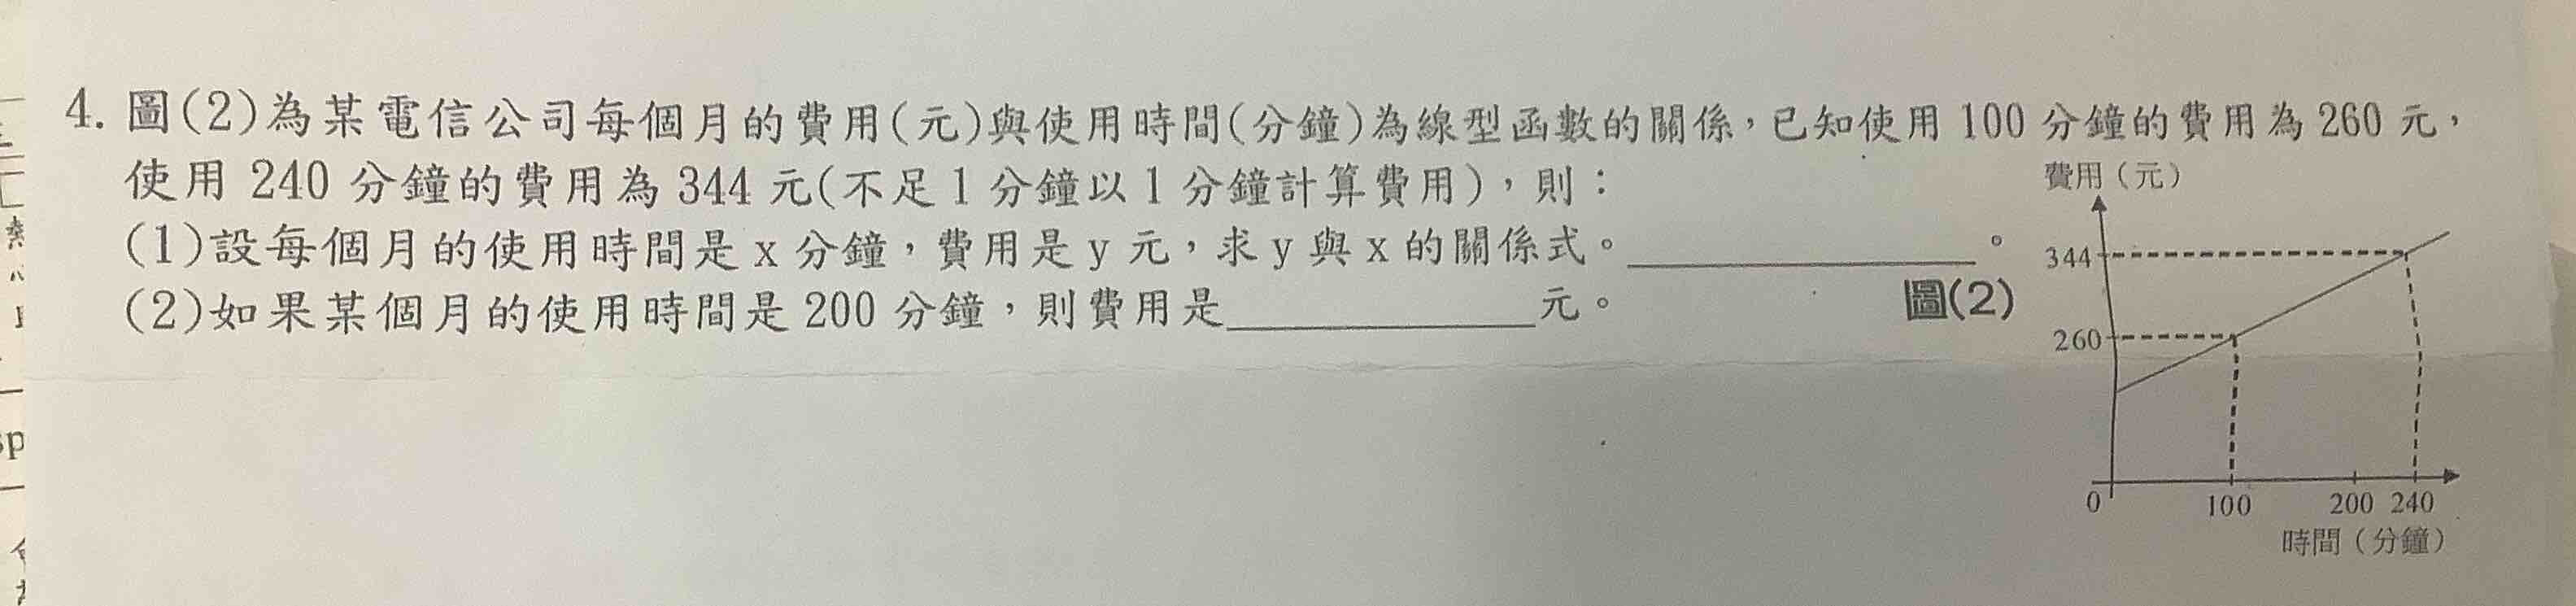 4. 圖(2)為某電信公司每個月的費用(元)與使用時間(分鐘)為線型函數的關係，已知使用 100 分鐘的費用為 260 元，
使用 240 分鐘的費用為 344 元(不足 1 分鐘以 1 分鐘計算費用)，則：
(1)設每個月的使用時間是 x 分鐘，費用是 y 元，求 y 與 x 的關係式。＿＿＿＿＿＿。
(2)如果某個月的使用時間是 200 分鐘，則費用是＿＿＿＿＿＿元。
圖(2)
費用（元）
344
260
0 100 200 240
時間（分鐘）
sp